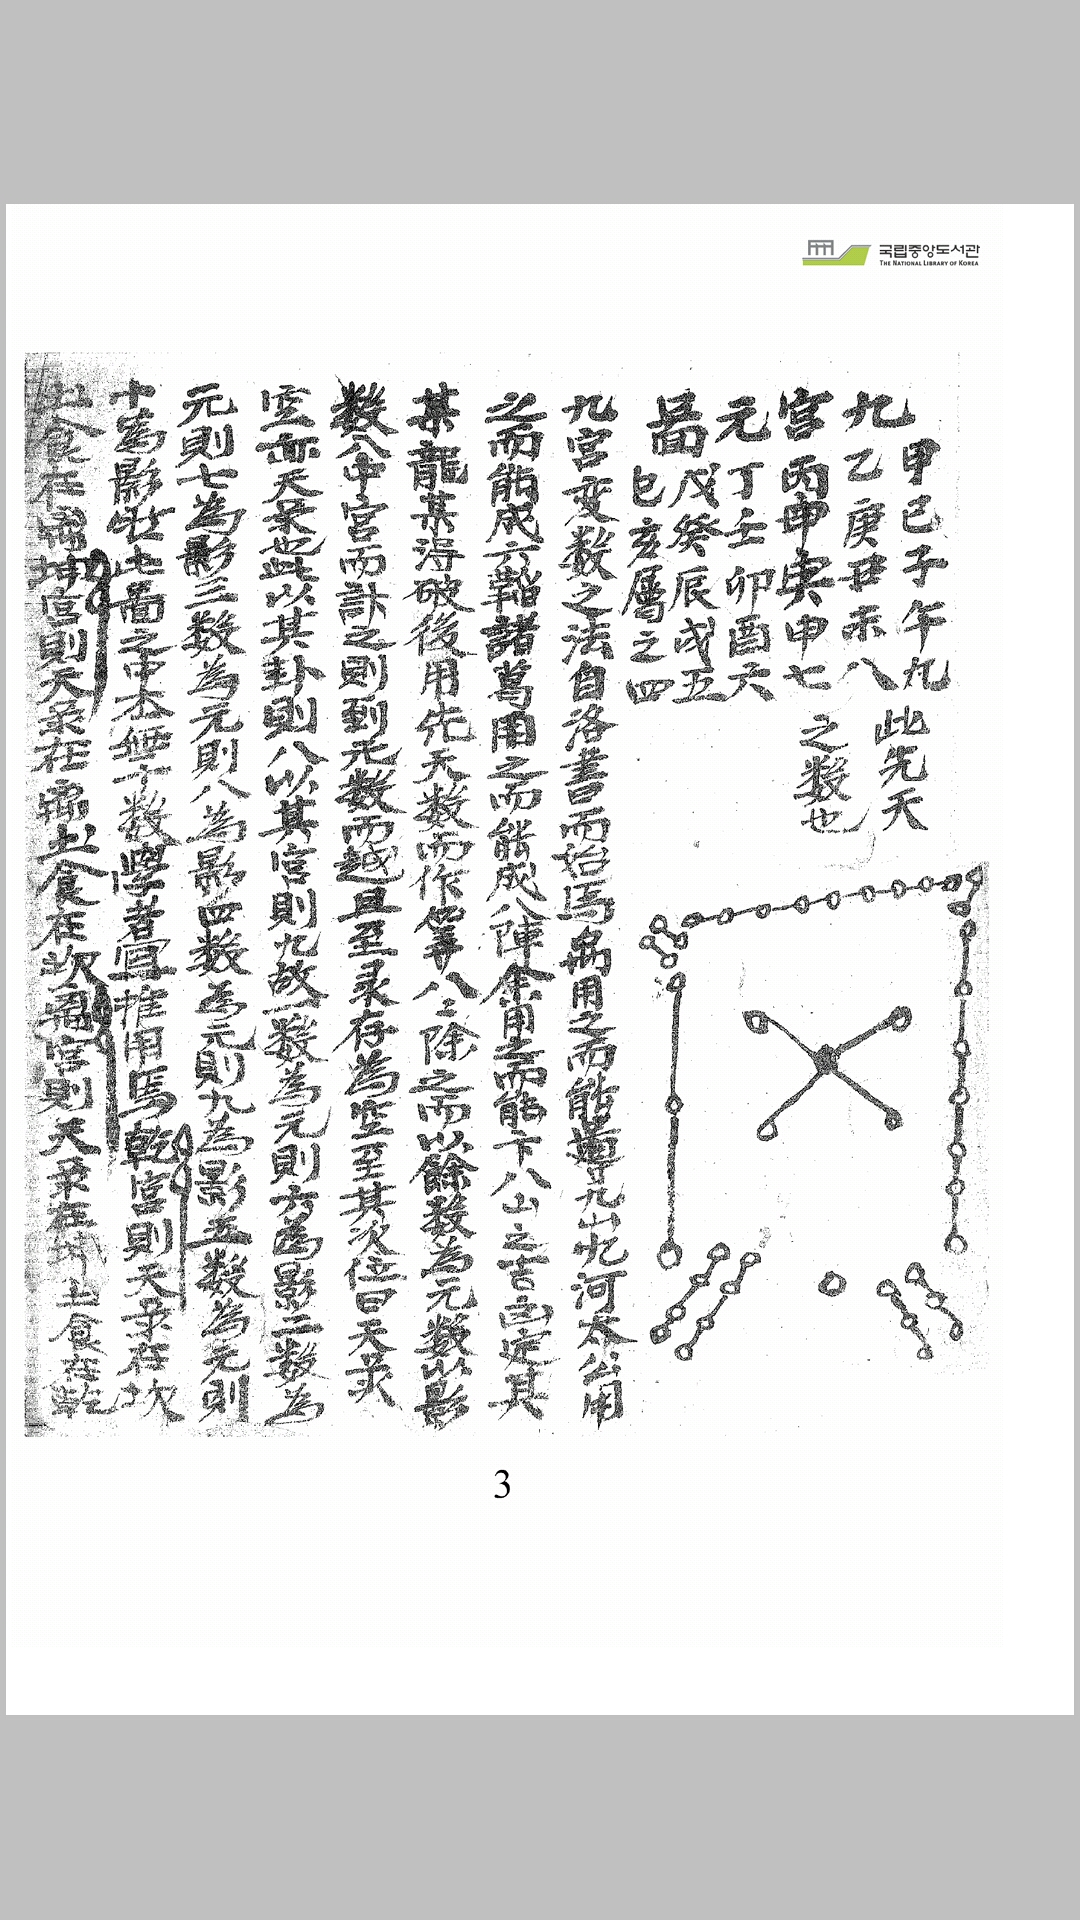 국립중앙도서관
THE NATIONAL LIBRARY OF KOREA
九宮元圖
甲己子午九
乙庚丑未八
丙申寅申七
丁壬卯酉六
戊癸辰戌五
巳亥屬之四
此先天
之數也
九宮変数之法自洛書而始焉禹用之而能導九山九河太公用
之而能成六韜諸葛用之而能成八陣余用之而能卞八山之吉凶定其
某龍某淂破後用先天数而作筭八二除之而以餘数為元数以影
数八中宮而計之則到元数而越且至彔存為空至其次位曰天彔
空亦天彔也此以其卦則八以其宮則九故一数為元則六為影二数為
元則七為影三数為元則八為影四数為元則九為影五数為元則
十為影此啚之中本無十数學者宜推用焉乾宮則天彔在坎
土食在 坤宮則天彔在 土食在坎 宮則天彔在 土食在乾
3